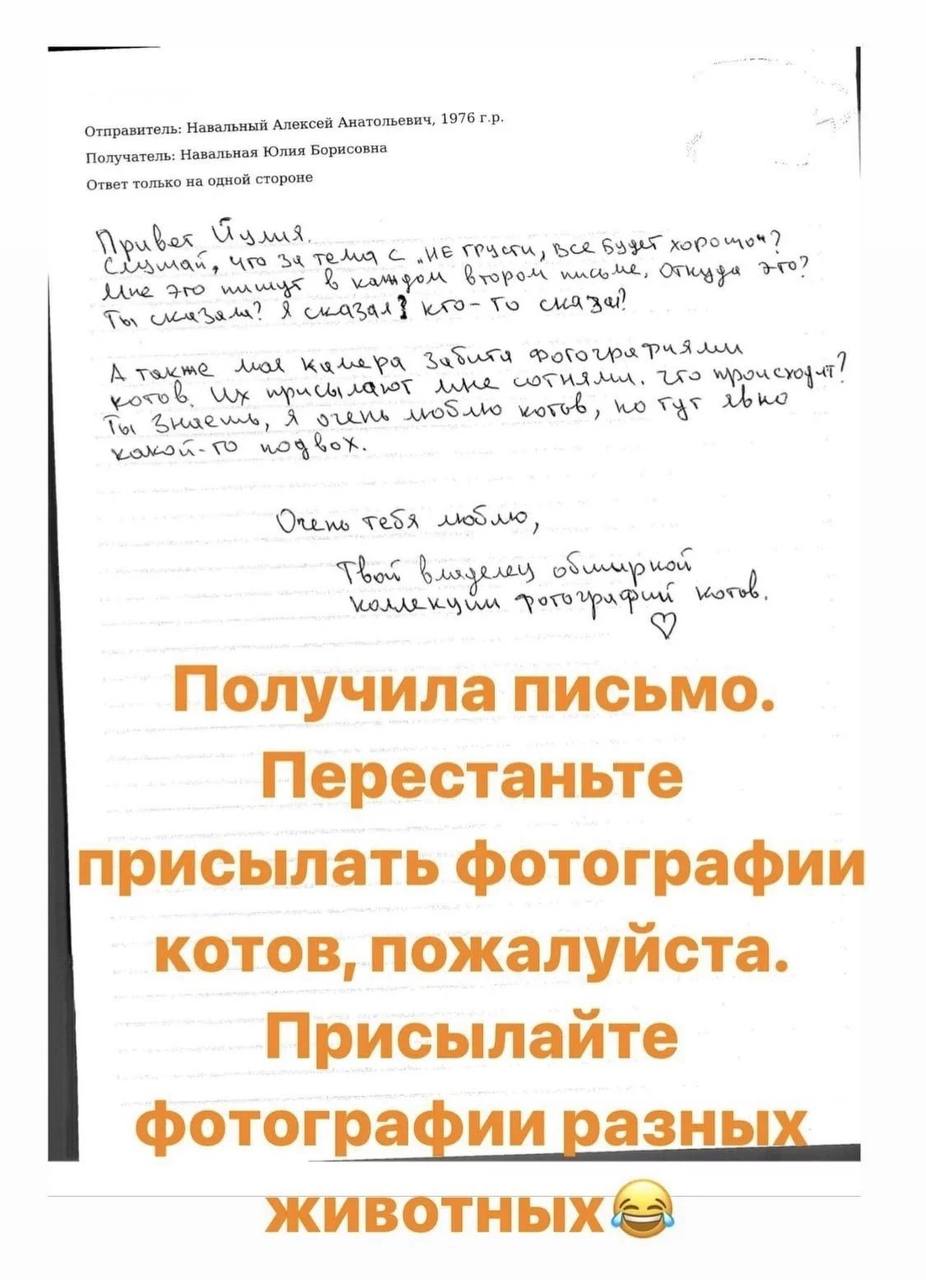 Отправитель: Навальный Алексей Анатольевич, 1976 г.р.
Получатель: Навальная Юлия Борисовна
Ответ только на одной стороне
Привет Йулия.
Слушай, что за тема с „не грусти, все будет хорошо“?
Мне это пишут в каждом втором письме. Откуда это?
Ты сказала? Я сказал? кто-то сказал?
А также моя камера забита фотографиями
котов. Их присылают мне сотнями. Что происходит?
Ты знаешь, я очень люблю котов, но тут явно
какой-то подвох.
Очень тебя люблю,
Твой владелец обширной
коллекции фотографий котов.
♡
Получила письмо.
Перестаньте
присылать фотографии
котов, пожалуйста.
Присылайте
фотографии разных
животных😂